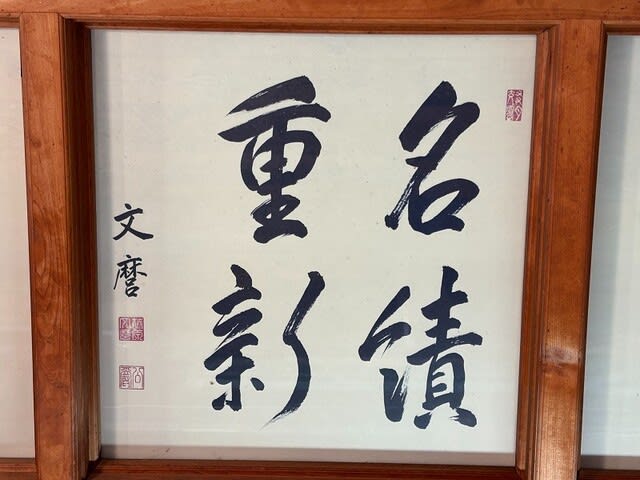 名績
重新
文麿